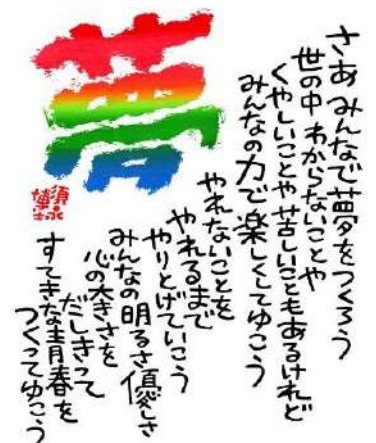 夢
さあ みんなで夢をつくろう
世の中 わからないことや
くやしいことや苦しいこともあるけれど
みんなの力で楽しくしてゆこう
やれないことを
やれるまで
やりとげていこう
みんなの明るさ優しさ
心の大きさを
だしきって
すてきな青春を
つくってゆこう
須永
博士